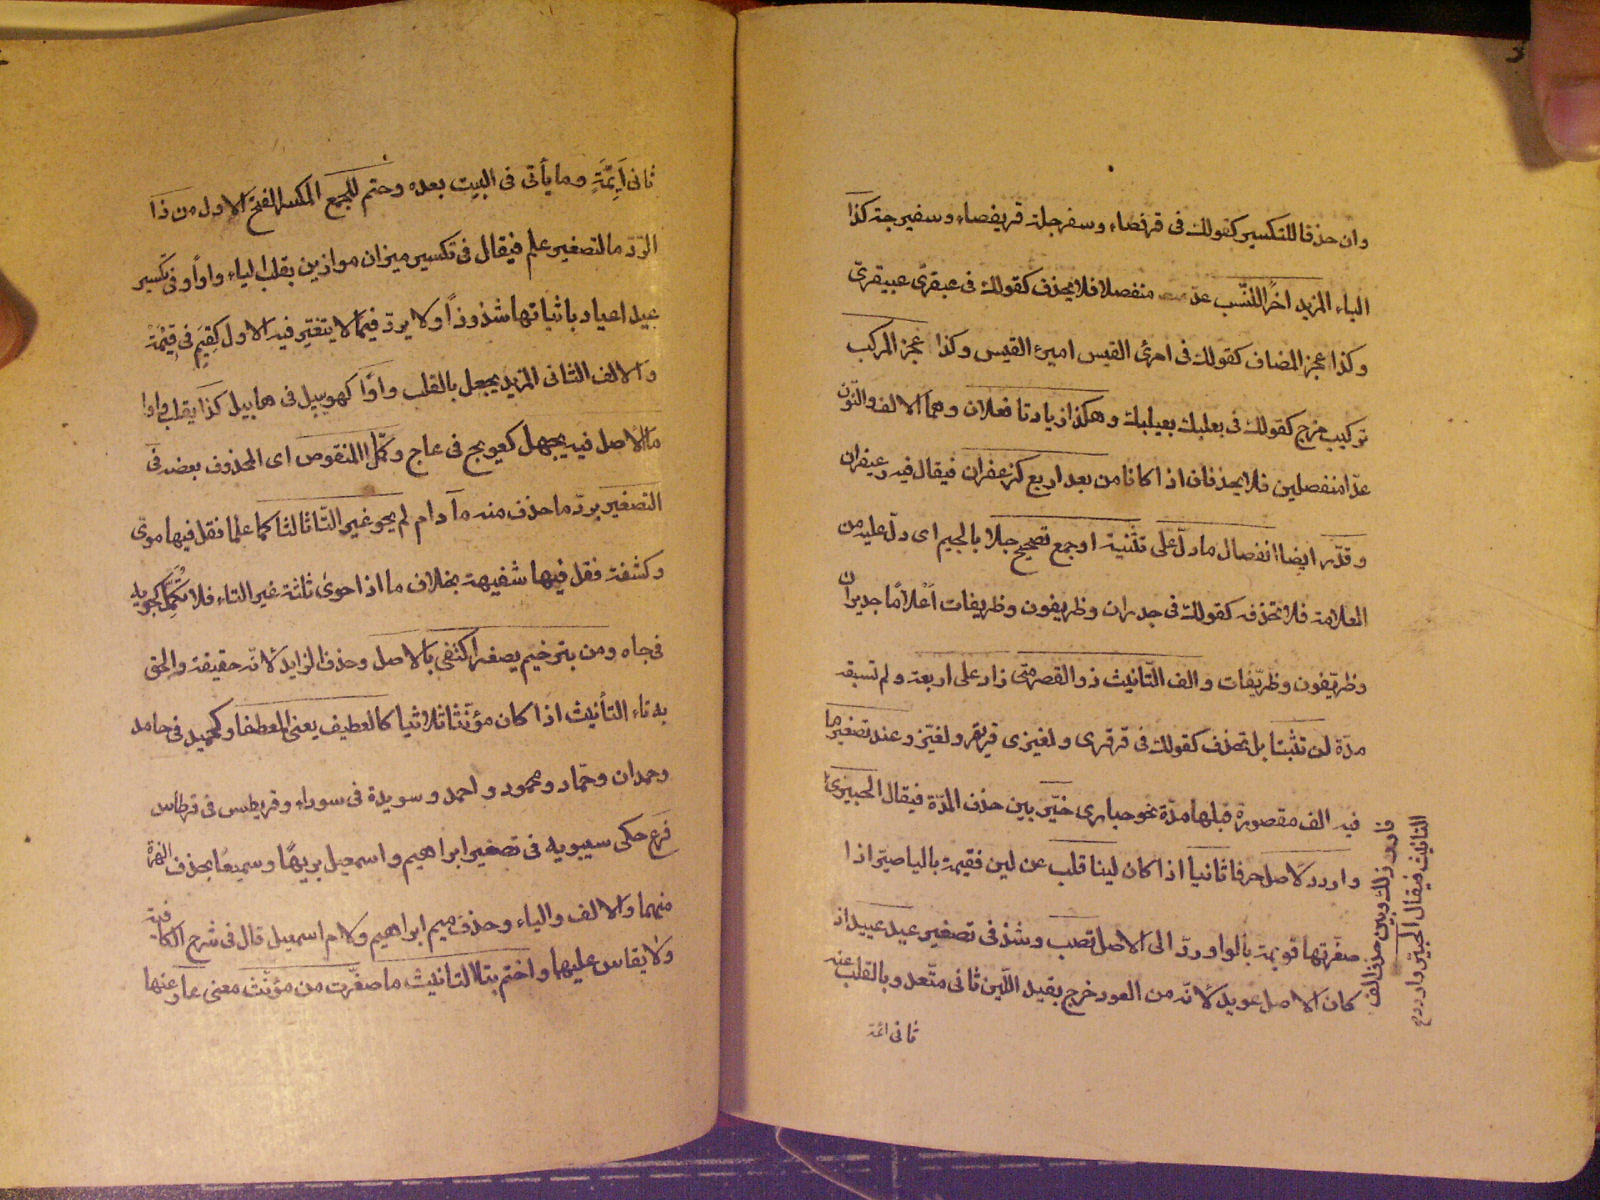 وان حذفا للتكسير كقولك فى قرفصاء وسفرجلة قريفصاء وسفيرجة كذا
الياء المزيد اخرًا للنسب عدّ منفصلا فلا يحذف كقولك فى عبقرىّ عبيقرىّ
وكذا عجز المضاف كقولك فى امرئ القيس اميرئ القيس وكذا عجز المركب
تركيب مزج كقولك فى بعلبك بعيلبك وهكذا زيادتا فعلان وهما الالف والنون
عدّا منفصلين فلا يحذفان اذا كانا من بعد اربع كزعفران فيقال فيه زعيفران
وقدّر ايضا انفصال ما دلّ على تثنية او جمع تصحيح جلا بالجيم اى دلّ عليه من
العلامة فلا تحذفه كقولك فى جدران وظريفون وظريفات اَعلامًا جديران
وظريّفون وظريّفات والف التأنيث ذو القصر متى زاد على اربعة ولم تسبقه
مدّة لن تثبتا بل تحذف كقولك فى قرقرى ولغيزى قريقر ولغيّز وعند تصغير ما
فيه الف مقصورة قبلها مدّة نحو حبارى خيّر بين حذف المدّة فيقال الحبيرى
واردد لاصل حرفا ثانيا اذا كان لينا قلب عن لين فقيمة بالياصيّر اذا
صغّرتها قويمة بالواو ردّ الى الاصل تصب وشذ فى تصغير عيد عييد اذ
كان الاصل عويد لانّه من العود خرج بقيد اللّين ثانى متّعد وبالقلب عنه
فادر ذلك وبين حذف الف
التانيث فيقال الحبيّر واردد
ثانى ائمة
ثانى اَئِمَّةٍ وما يأتى فى البيت بعده وحتم للجمع المكسر الفتح الاول من ذا
الردّ ما لتصغير علم فيقال فى تكسير ميزان موازين بقلب الياء واوًا وفى تكسير
عيد اعياد باثباتها شذوذًا ولا يردّ فيما لا يتغيّر فيه الاول كقِيَم فى قِيْمَة
والالف الثانى المزيد يجعل بالقلب واوًا كهويبيل فى هابيل كذا يقلب واوا
ما الاصل فيه يجهل كعويج فى عاج وكمّل المنقوص اى المحذوف بعضه فى
التصغير بردّ ما حذف منه ما دام لم يحو غير التّا ثالثا كما علما فقل فيها موىّ
وكشفة فقل فيها شفيهة بخلاف ما اذا حوى ثلثة غير التاء فلا تُكمّل كجويه
فى جاه ومن بترخيم يصغر اكتفى بالاصل وحذف الزايد لانّه حقيقة والحق
به تاء التأنيث اذا كان مؤنّثا ثلاثيا كالعطيف يعنى المعطفا وكحميد فى حامد
وحمدان وحمّاد ومحمود و احمد وسويدة فى سوداء وقريطس فى قرطاس
فرع حكى سيبويه فى تصغير ابراهيم واسمعيل بريهًا وسميعًا بحذف الهمزة
منهما والالف والياء وحذف ميم ابراهيم ولام اسمعيل قال فى شرح الكافية
ولا يقاس عليهما واختم بتا التانيث ما صغّرت من مؤنّث معنى عار عنها